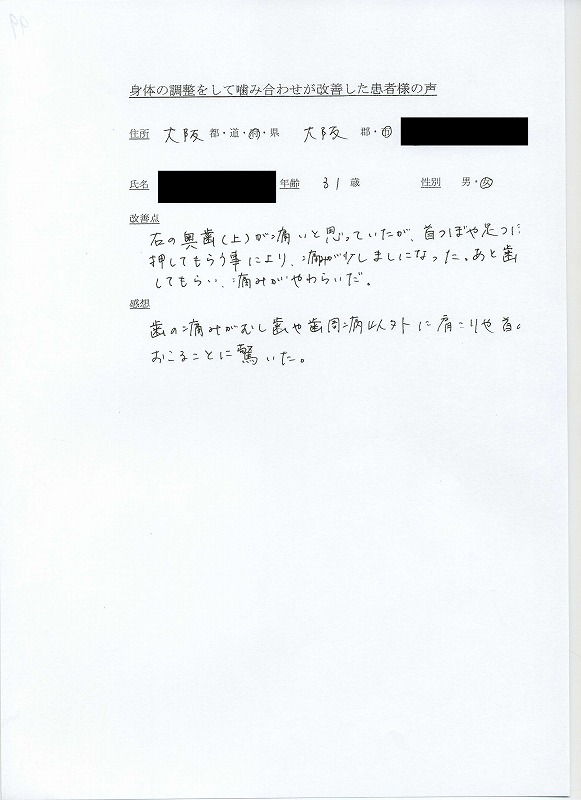 身体の調整をして噛み合わせが改善した患者様の声
住所 大阪 都・道・府・県 大阪 郡・市
氏名 年齢 31 歳 性別 男・女
改善点
右の奥歯(上)が痛いと思っていたが、首つぼや足つぼ
押してもらう事により、痛みが少しましになった。あと歯
してもらい、痛みがやわらいだ。
感想
歯の痛みがむし歯や歯周病以外に肩こりや首
おこることに驚いた。